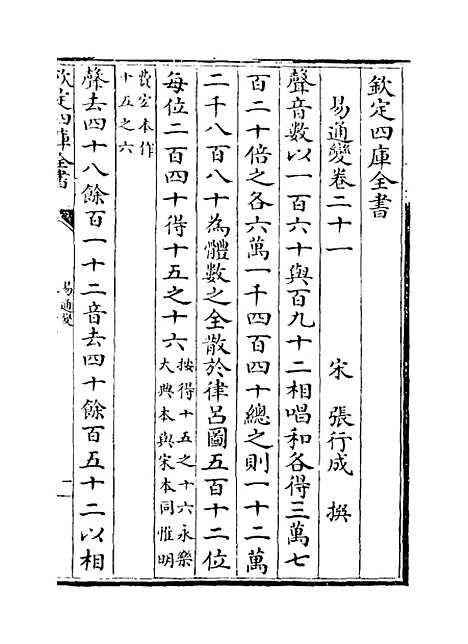 欽定四庫全書
易通變卷二十一　宋　張行成　撰
聲音數以一百六十與百九十二相唱和各得三萬七
百二十倍之各六萬一千四百四十總之則一十二萬
二千八百八十為體數之全散於律呂圖五百十二位
每位二百四十得十五之十六
按得十五之十六永樂
大典本與宋本同惟明
費宏本作
十五之六
聲去四十八餘百一十二音去四十餘百五十二以相
欽定四庫全書
易通變